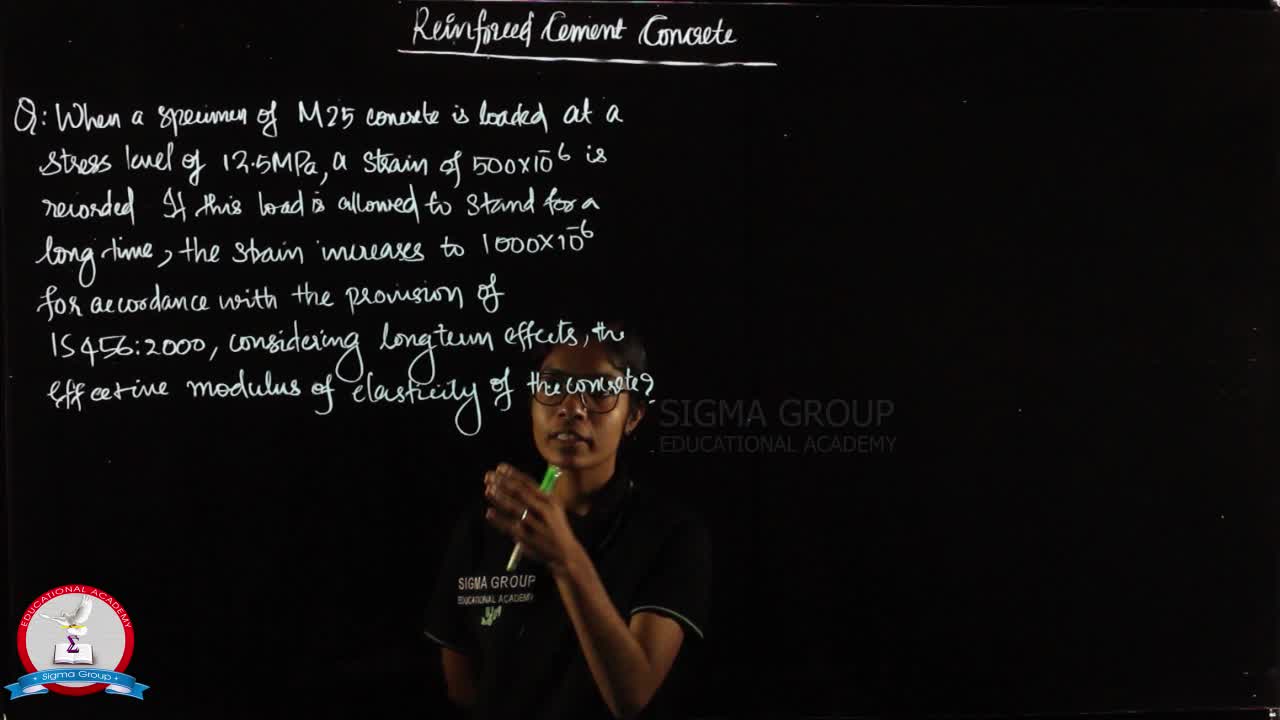 Reinforced Cement Concrete
Q: When a specimen of M25 concrete is loaded at a
stress level of 12.5MPa, a strain of 500×10⁻⁶ is
recorded If this load is allowed to stand for a
long time, the strain increases to 1000×10⁻⁶
for accordance with the provision of
IS456:2000, considering longterm effects, the
effective modulus of elasticity of the concrete?
SIGMA GROUP
EDUCATIONAL ACADEMY
SIGMA GROUP
EDUCATIONAL ACADEMY
EDUCATIONAL ACADEMY
Σ
Sigma Group